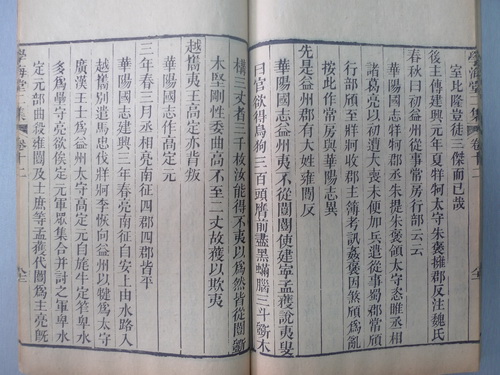 學海堂二集 卷十二
室比隆豈徒三傑而已哉
後主傳建興元年夏牂牁太守朱褒擁郡反注魏氏
春秋曰初益州從事常房行部云云
華陽國志牂牁郡丞朱提朱褒領太守恣睢丞相
諸葛亮以初遭大喪未便加兵遣從事蜀郡常頎
行部頎至牂牁收郡主簿考訊姦褒因煞頎爲亂
按此作常房與華陽國志異
先是益州郡有大姓雍闓反
華陽國志益州夷不從闓闓使建寧孟獲說夷叟
曰官欲得烏狗三百頭膺前盡黑蟎腦三斗斲木
構三丈者三千枚汝能得不夷以爲然皆從闓斲
木堅剛性委曲高不至二丈故獲以欺夷
越巂夷王高定亦背叛
華陽國志作高定元
三年春三月丞相亮南征四郡四郡皆平
華陽國志建興三年春亮南征自安上由水路入
越巂別遣馬忠伐牂牁李恢向益州以犍爲太守
廣漢王士爲益州太守高定元自旄牛定笮卑水
多爲壘守亮欲俟定元軍眾集合并討之軍卑水
定元部曲殺雍闓及士庶等孟獲代闓爲主亮旣
學海堂二集 卷十二